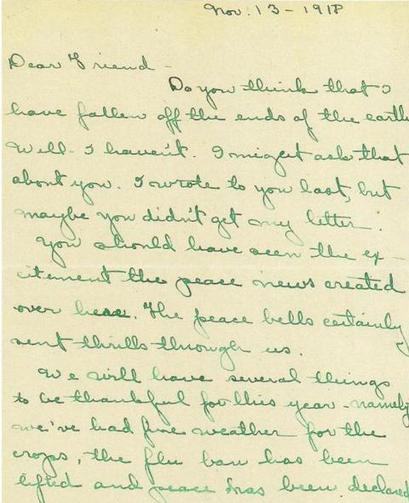 Nov. 13 - 1918
Dear Friend -
Do you think that I
have fallen off the ends of the earth
Well - I haven't. I might ask that
about you. I wrote to you last, but
maybe you didn't get my letter.
You should have seen the ex -
citement the peace news created
over here. The peace bells certainly
sent thrills through us.
We will have several things
to be thankful for this year - namely
we've had fine weather for the
crops, the flu ban has been
lifted and peace has been declared